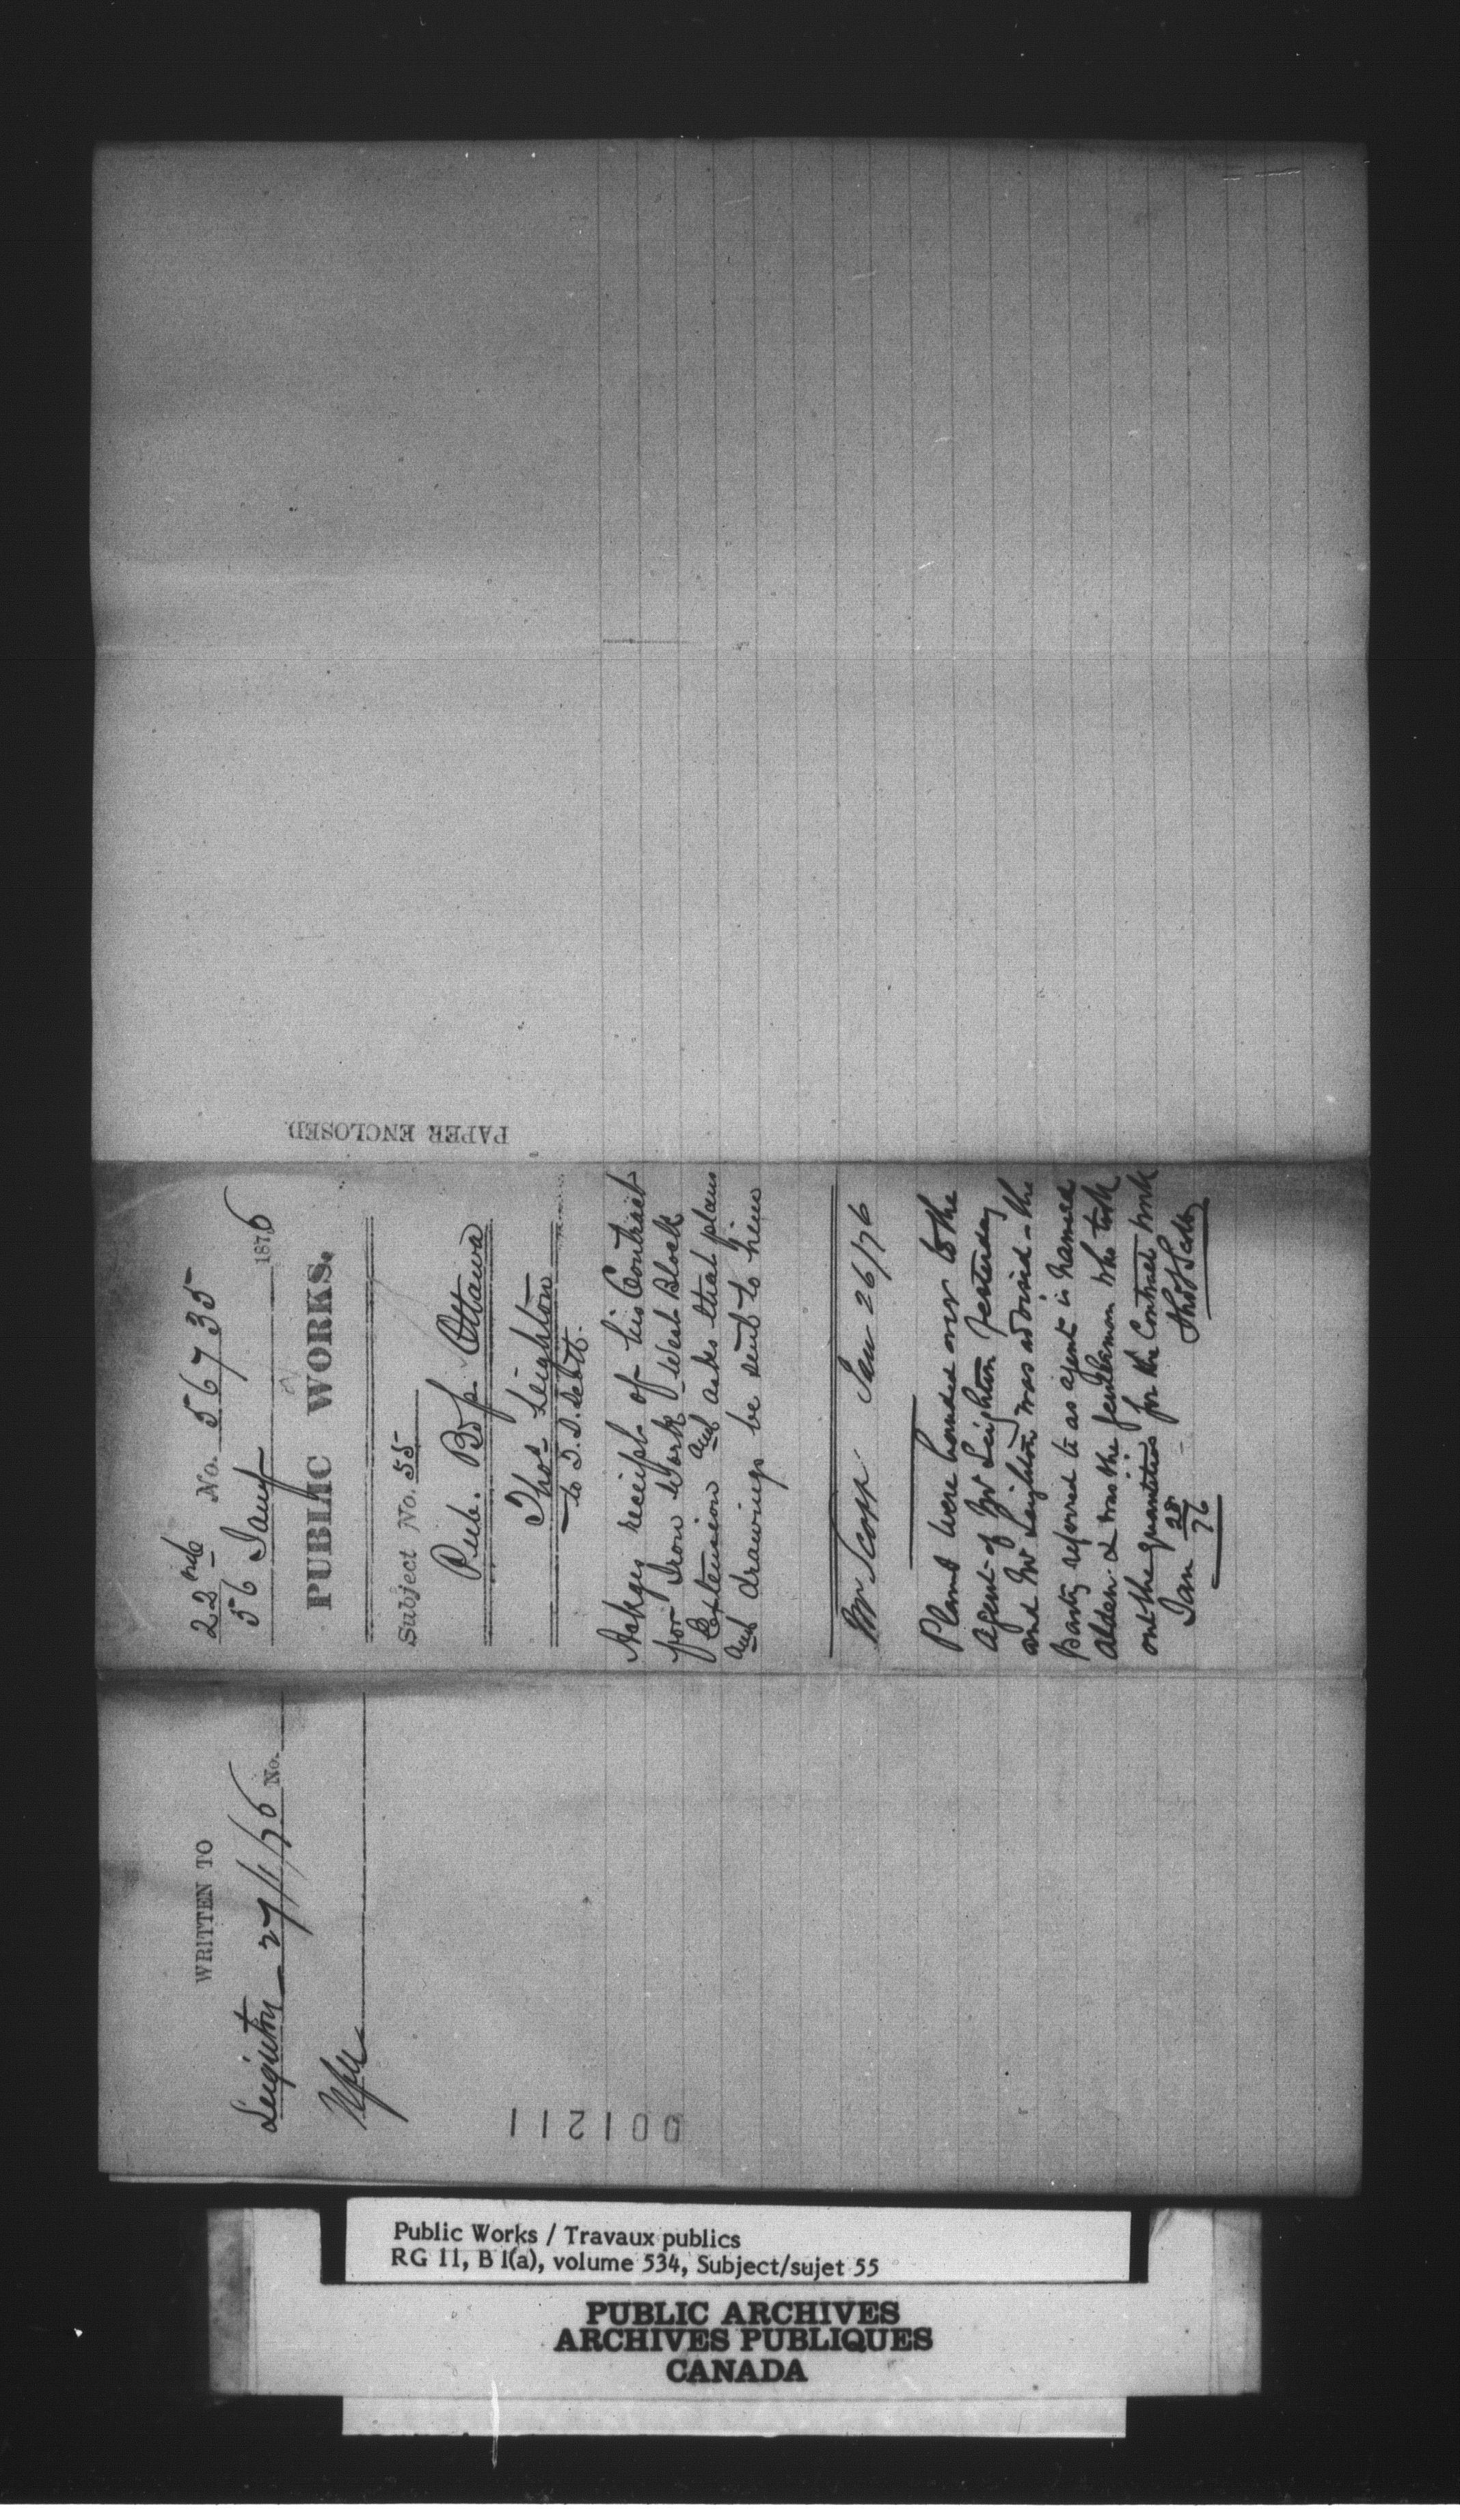 22nd No. 56735
26 Jany 1876
PUBLIC WORKS.
Subject No. 55
Pub. Bdgs. Ottawa
Thos Leighton
to T. S. Scott.
Ackges receipt of his Contract
for Iron Work West Block
Extension and asks that plans
and drawings be sent to him
Mr Scott Jan 26/76
Plans were handed over to the
agent of Mr Leighton yesterday
and Mr Leighton was advised - the
Party referred to as agent is named
Alden & was the gentleman who took
out the quantities for the Contract work
Jan 28/76
PAPER ENCLOSED
WRITTEN TO
Leighton 27/1/76 No.
001211
Public Works / Travaux publics
RG 11, B 1(a), volume 534, Subject/sujet 55
PUBLIC ARCHIVES
ARCHIVES PUBLIQUES
CANADA